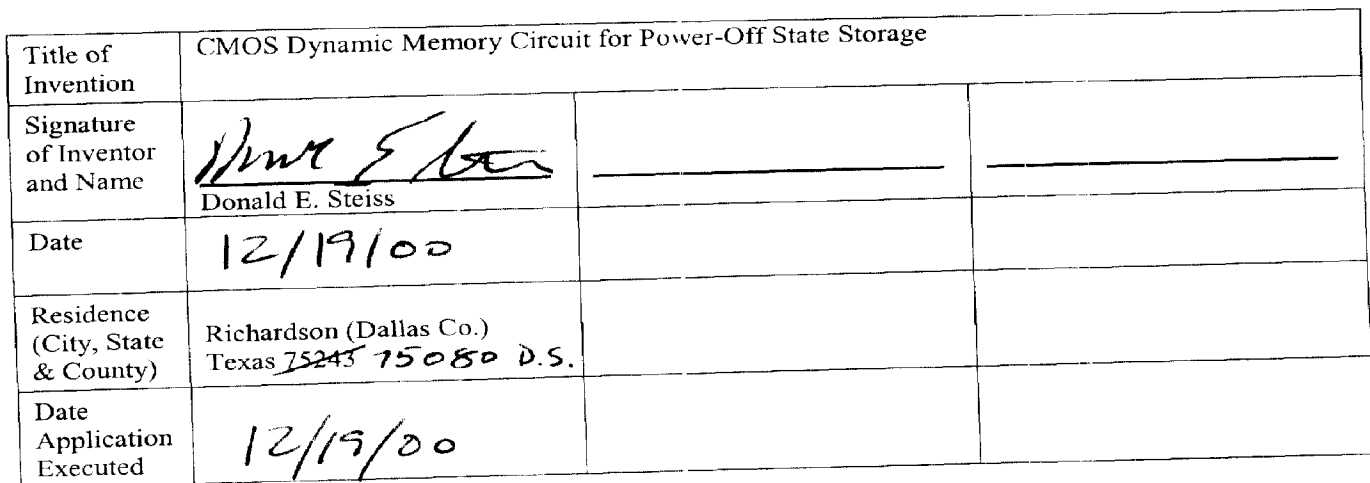 Title of Invention
CMOS Dynamic Memory Circuit for Power-Off State Storage
Signature of Inventor and Name
Donald E. Steiss
Date
12/19/00
Residence (City, State & County)
Richardson (Dallas Co.)
Texas 75243 75080 D.S.
Date Application Executed
12/19/00